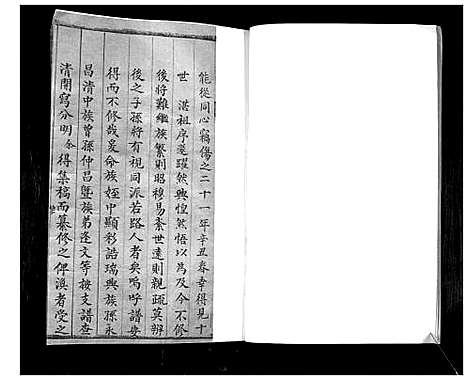 能從同心竊傷之二十一年辛丑春幸得見十
世　湛祖序遂躍然興惶然悟以為及今不修
後將難繼族繁則昭穆易紊世遠則親疏莫辨
後之子孫將有視同派若路人者矣嗚呼譜安
得而不修哉爰命族姪中顯彩誥瑞與族孫永
昌清中族曾孫仲昌暨族弟逢文等按支譜查
清開寫分明今得集稿而纂修之俾溟者受之